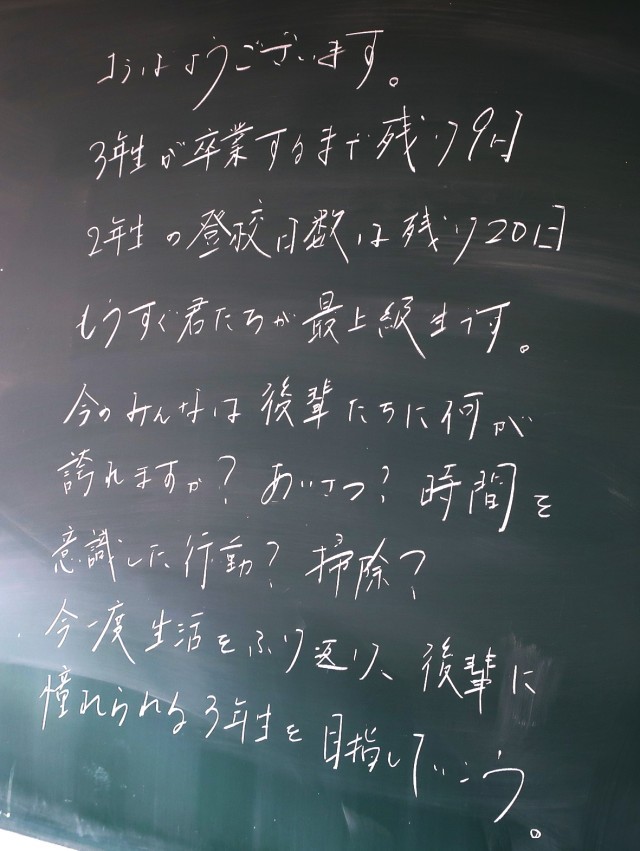 おはようございます。
3年生が卒業するまで残り9日
2年生の登校日数は残り20日
もうすぐ君たちが最上級生です。
今のみんなは後輩たちに何が
誇れますか?あいさつ?時間を
意識した行動?掃除?
今一度生活をふり返り、後輩に
憧れられる3年生を目指していこう。